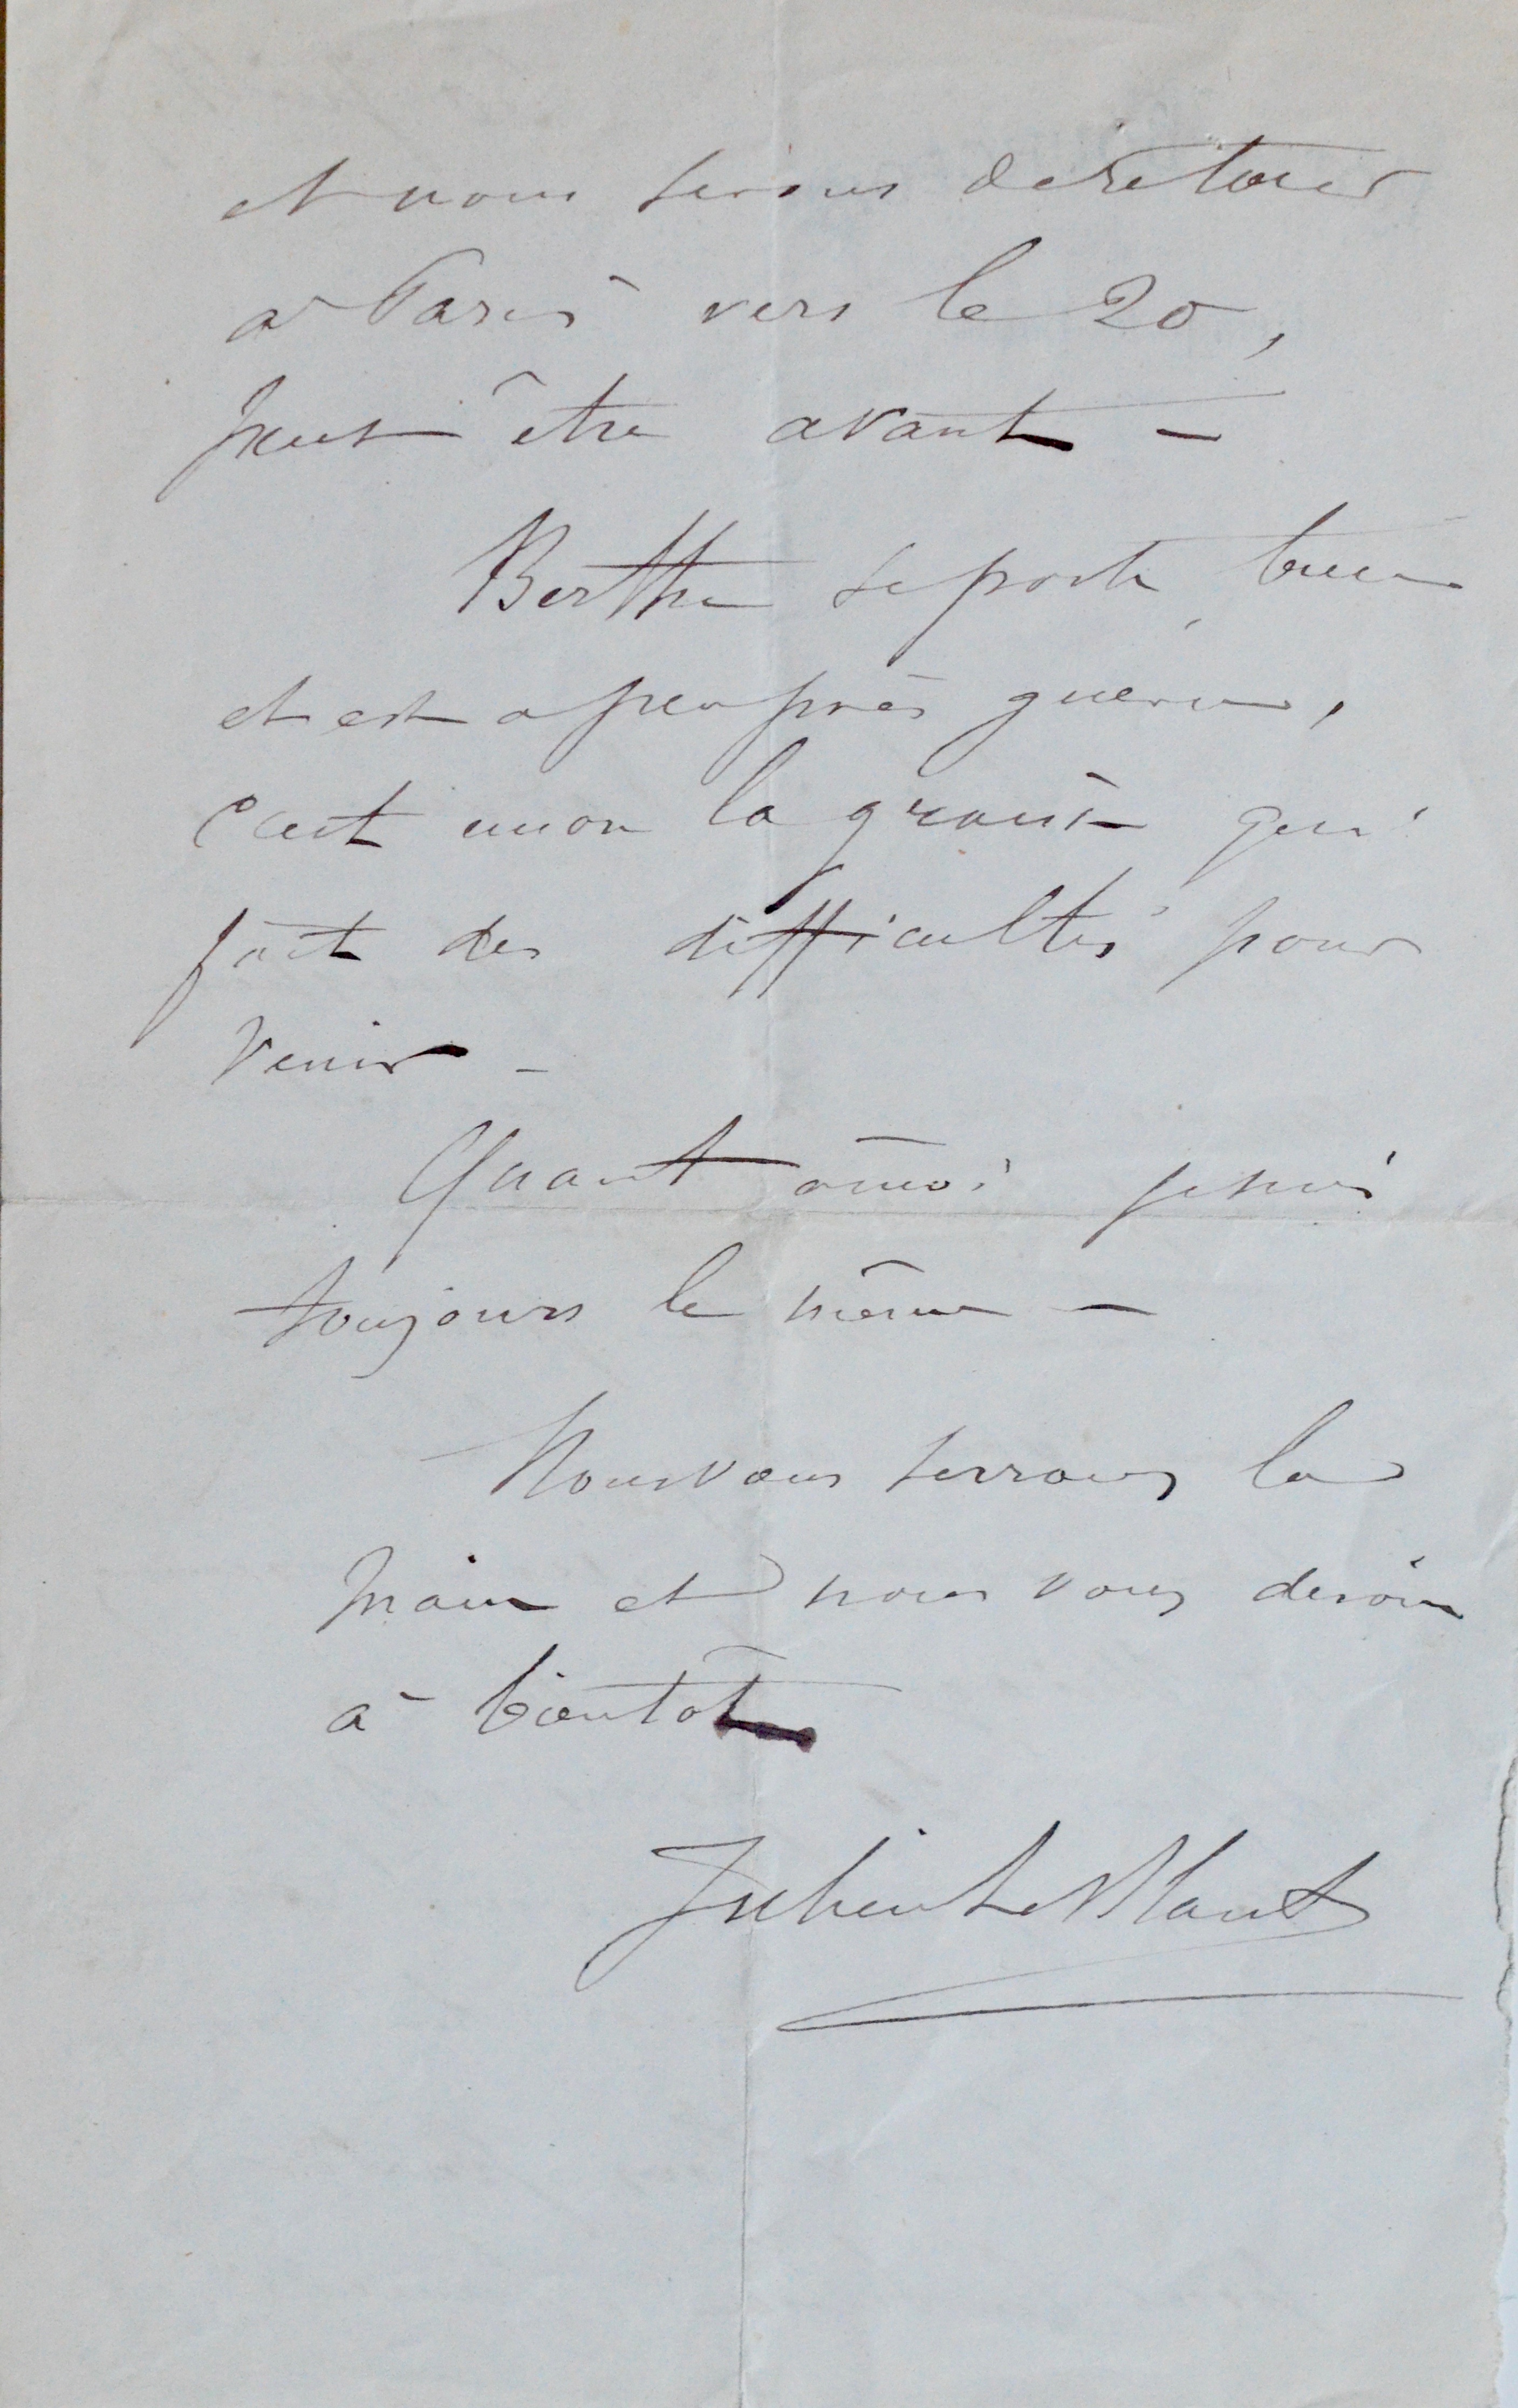 et nous serons de retour
a Paris vers le 20,
peut être avant –
Berthe se porte bien
et est a peu près guérie,
c'est encore la graisse qui
fait des difficultés pour
venir –
Quant à moi je suis
toujours le même –
Nous vous serrons la
main et nous vous disons
à bientôt
Julien Le Blant